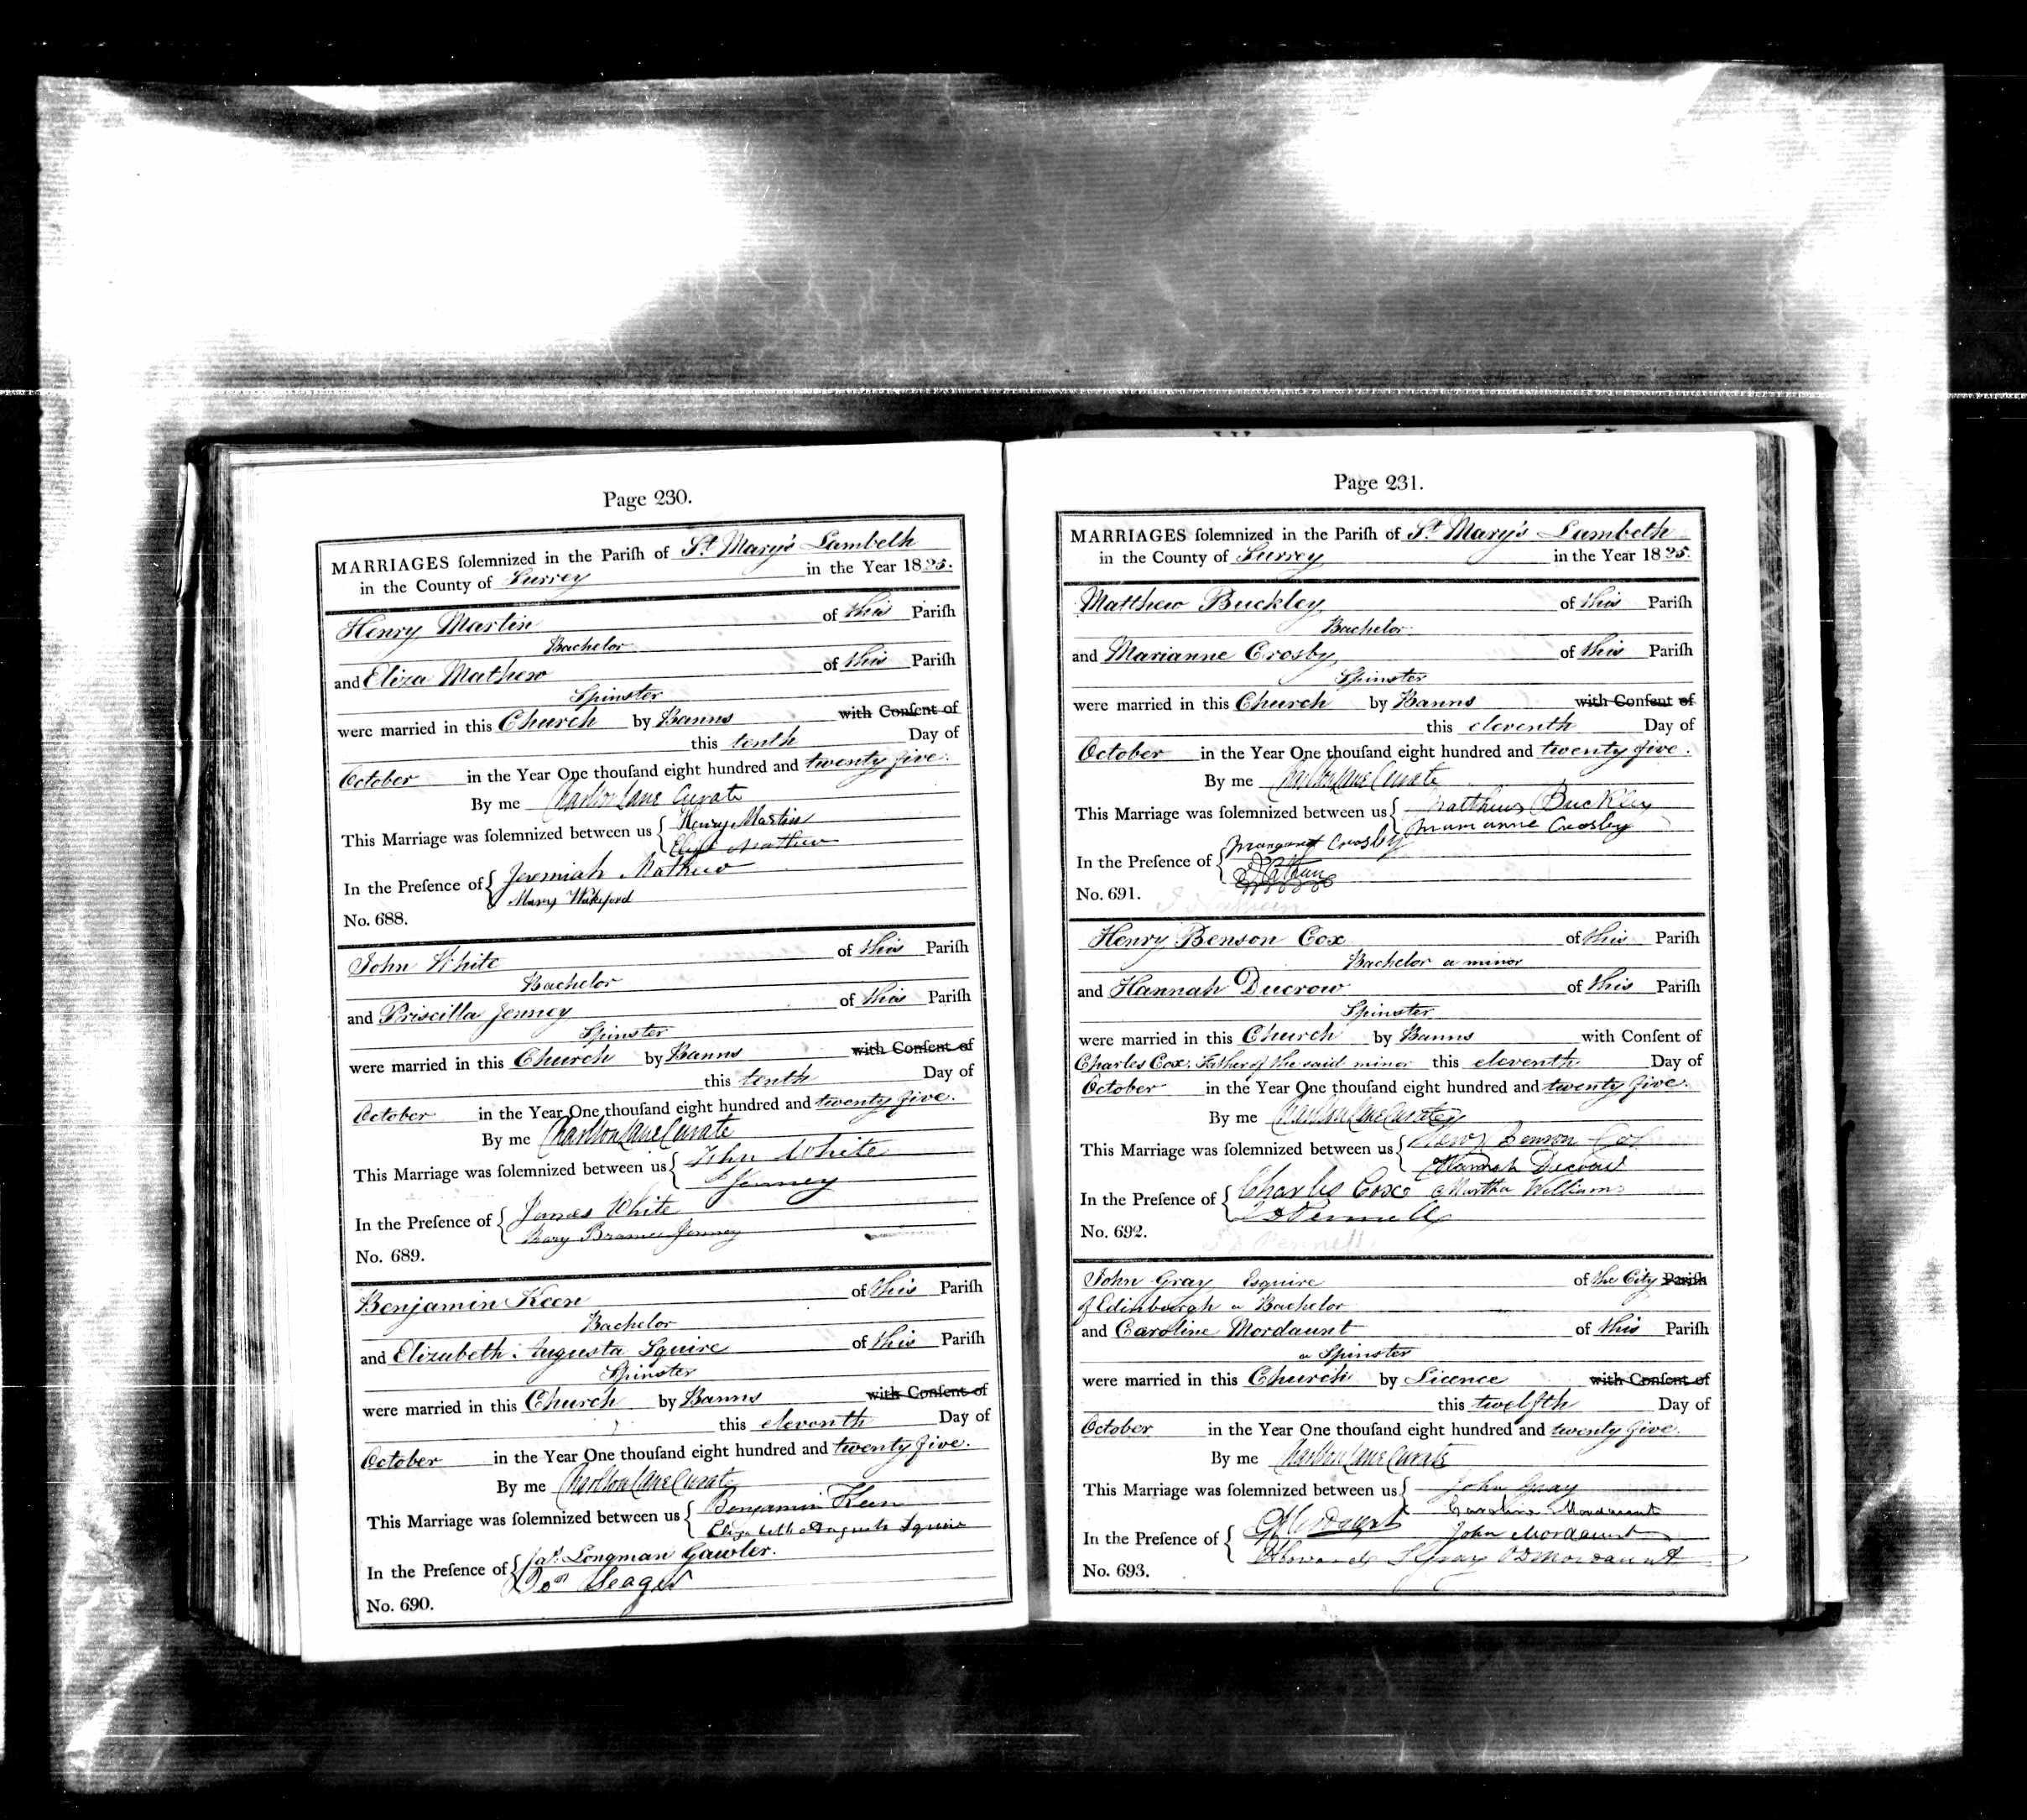 Page 230.
MARRIAGES solemnized in the Parish of St Mary's Lambeth
in the County of Surrey in the Year 1825.
Henry Martin of this Parish
Bachelor
and Eliza Mathew of this Parish
Spinster
were married in this Church by Banns with Consent of
this tenth Day of
October in the Year One thousand eight hundred and twenty five.
By me Charlton Lane Curate
This Marriage was solemnized between us Henry Martin
Eliza Mathew
In the Presence of Jeremiah Mathew
Mary Wakeford
No. 688.
John White of this Parish
Bachelor
and Priscilla Jenney of this Parish
Spinster
were married in this Church by Banns with Consent of
this tenth Day of
October in the Year One thousand eight hundred and twenty five.
By me Charlton Lane Curate
This Marriage was solemnized between us John White
P Jenney
In the Presence of James White
Mary Jenney
No. 689.
Benjamin Keen of this Parish
Bachelor
and Elizabeth Augusta Squire of this Parish
Spinster
were married in this Church by Banns with Consent of
this eleventh Day of
October in the Year One thousand eight hundred and twenty five.
By me Charlton Lane Curate
This Marriage was solemnized between us Benjamin Keen
Elizabeth Augusta Squire
In the Presence of Jas. Longman Gawler.
Seager
No. 690.
Page 231.
MARRIAGES solemnized in the Parish of St Mary's Lambeth
in the County of Surrey in the Year 1825.
Matthew Buckley of this Parish
Bachelor
and Marianne Crosby of this Parish
Spinster
were married in this Church by Banns with Consent of
this eleventh Day of
October in the Year One thousand eight hundred and twenty five.
By me Charlton Lane Curate
This Marriage was solemnized between us Matthew Buckley
Marianne Crosby
In the Presence of Margaret Crosby
No. 691.
Henry Benson Cox of this Parish
Bachelor a minor
and Hannah Ducrow of this Parish
Spinster
were married in this Church by Banns with Consent of
Charles Cox, Father of the said minor this eleventh Day of
October in the Year One thousand eight hundred and twenty five.
By me Charlton Lane Curate
This Marriage was solemnized between us Henry Benson Cox
Hannah Ducrow
In the Presence of Charles Cox Martha Williams
Pennell
No. 692.
John Gray Esquire of the City Parish
of Edinburgh a Bachelor
and Caroline Mordaunt of this Parish
a Spinster
were married in this Church by Licence with Consent of
this twelfth Day of
October in the Year One thousand eight hundred and twenty five.
By me Charlton Lane Curate
This Marriage was solemnized between us John Gray
Caroline Mordaunt
In the Presence of Mordaunt John Mordaunt
Gray Mordaunt
No. 693.